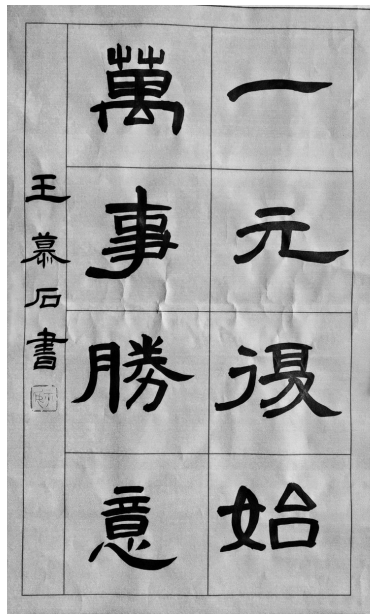 一元復始
萬事勝意
王慕石書